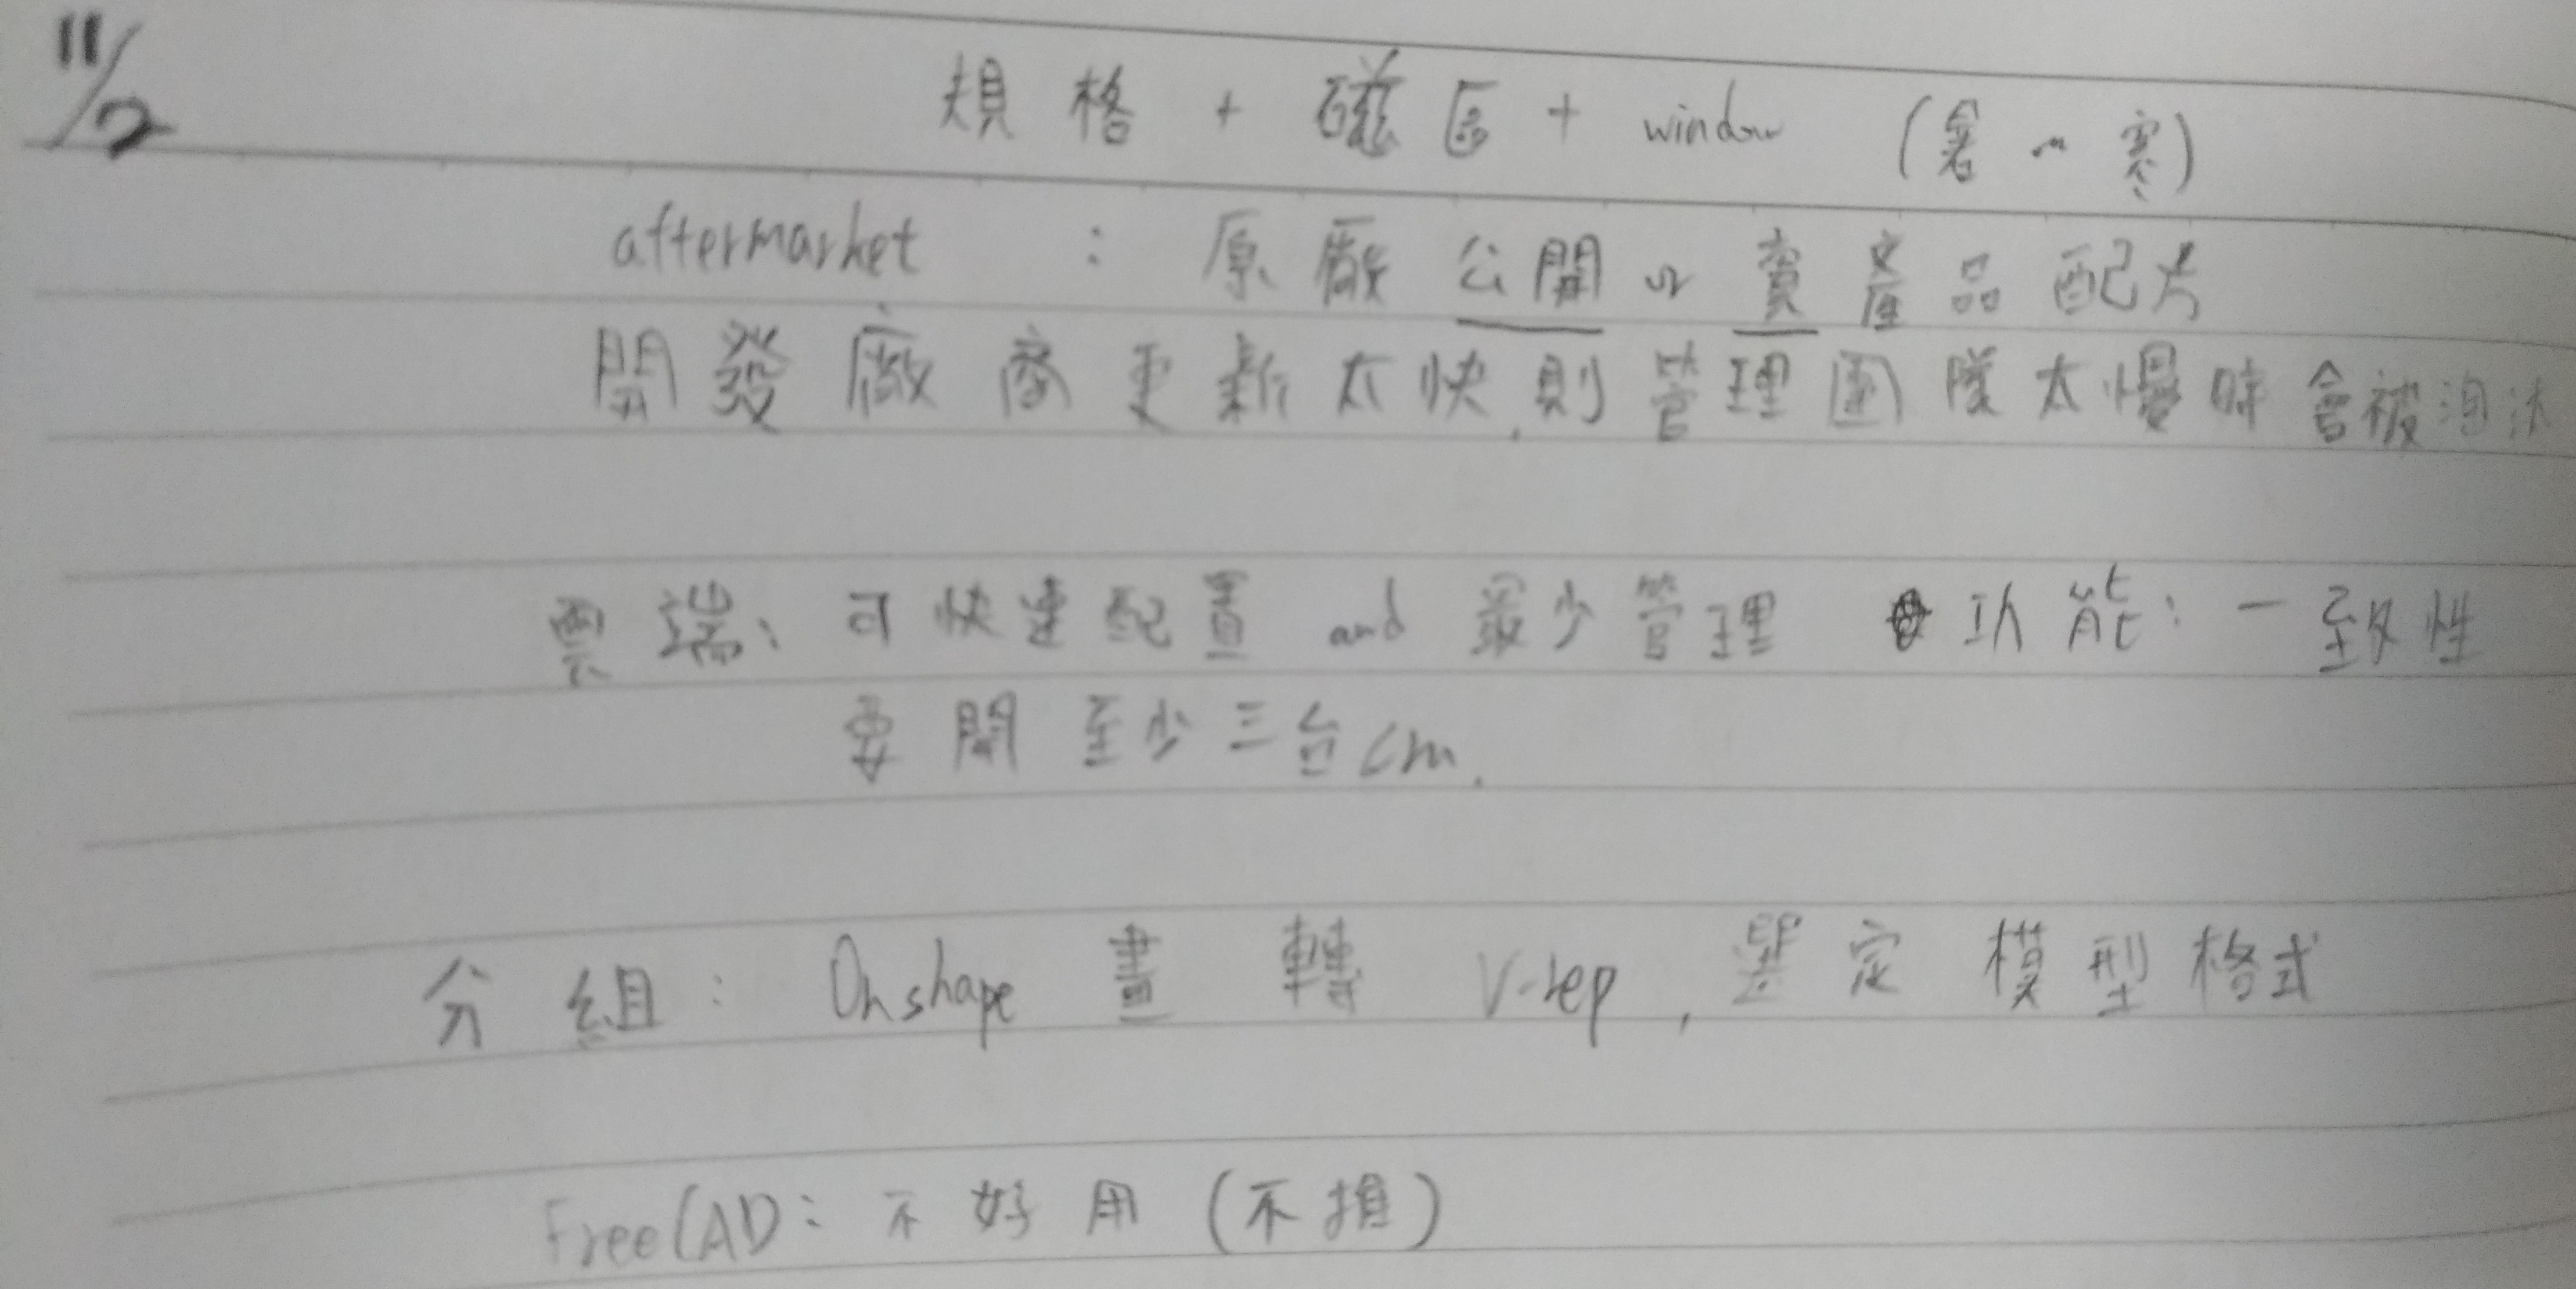 11/2
規格 + 磁區 + window (暑~寒)
aftermarket : 原廠公開 or 賣產品配方
開發廠商更新太快,則管理團隊太慢時會被淘汰
雲端: 可快速配置 and 最少管理 功能: 一致性
要開至少三台cm.
分組: Onshape 畫轉 V-rep, 選定模型格式
FreeCAD: 不好用 (不推)